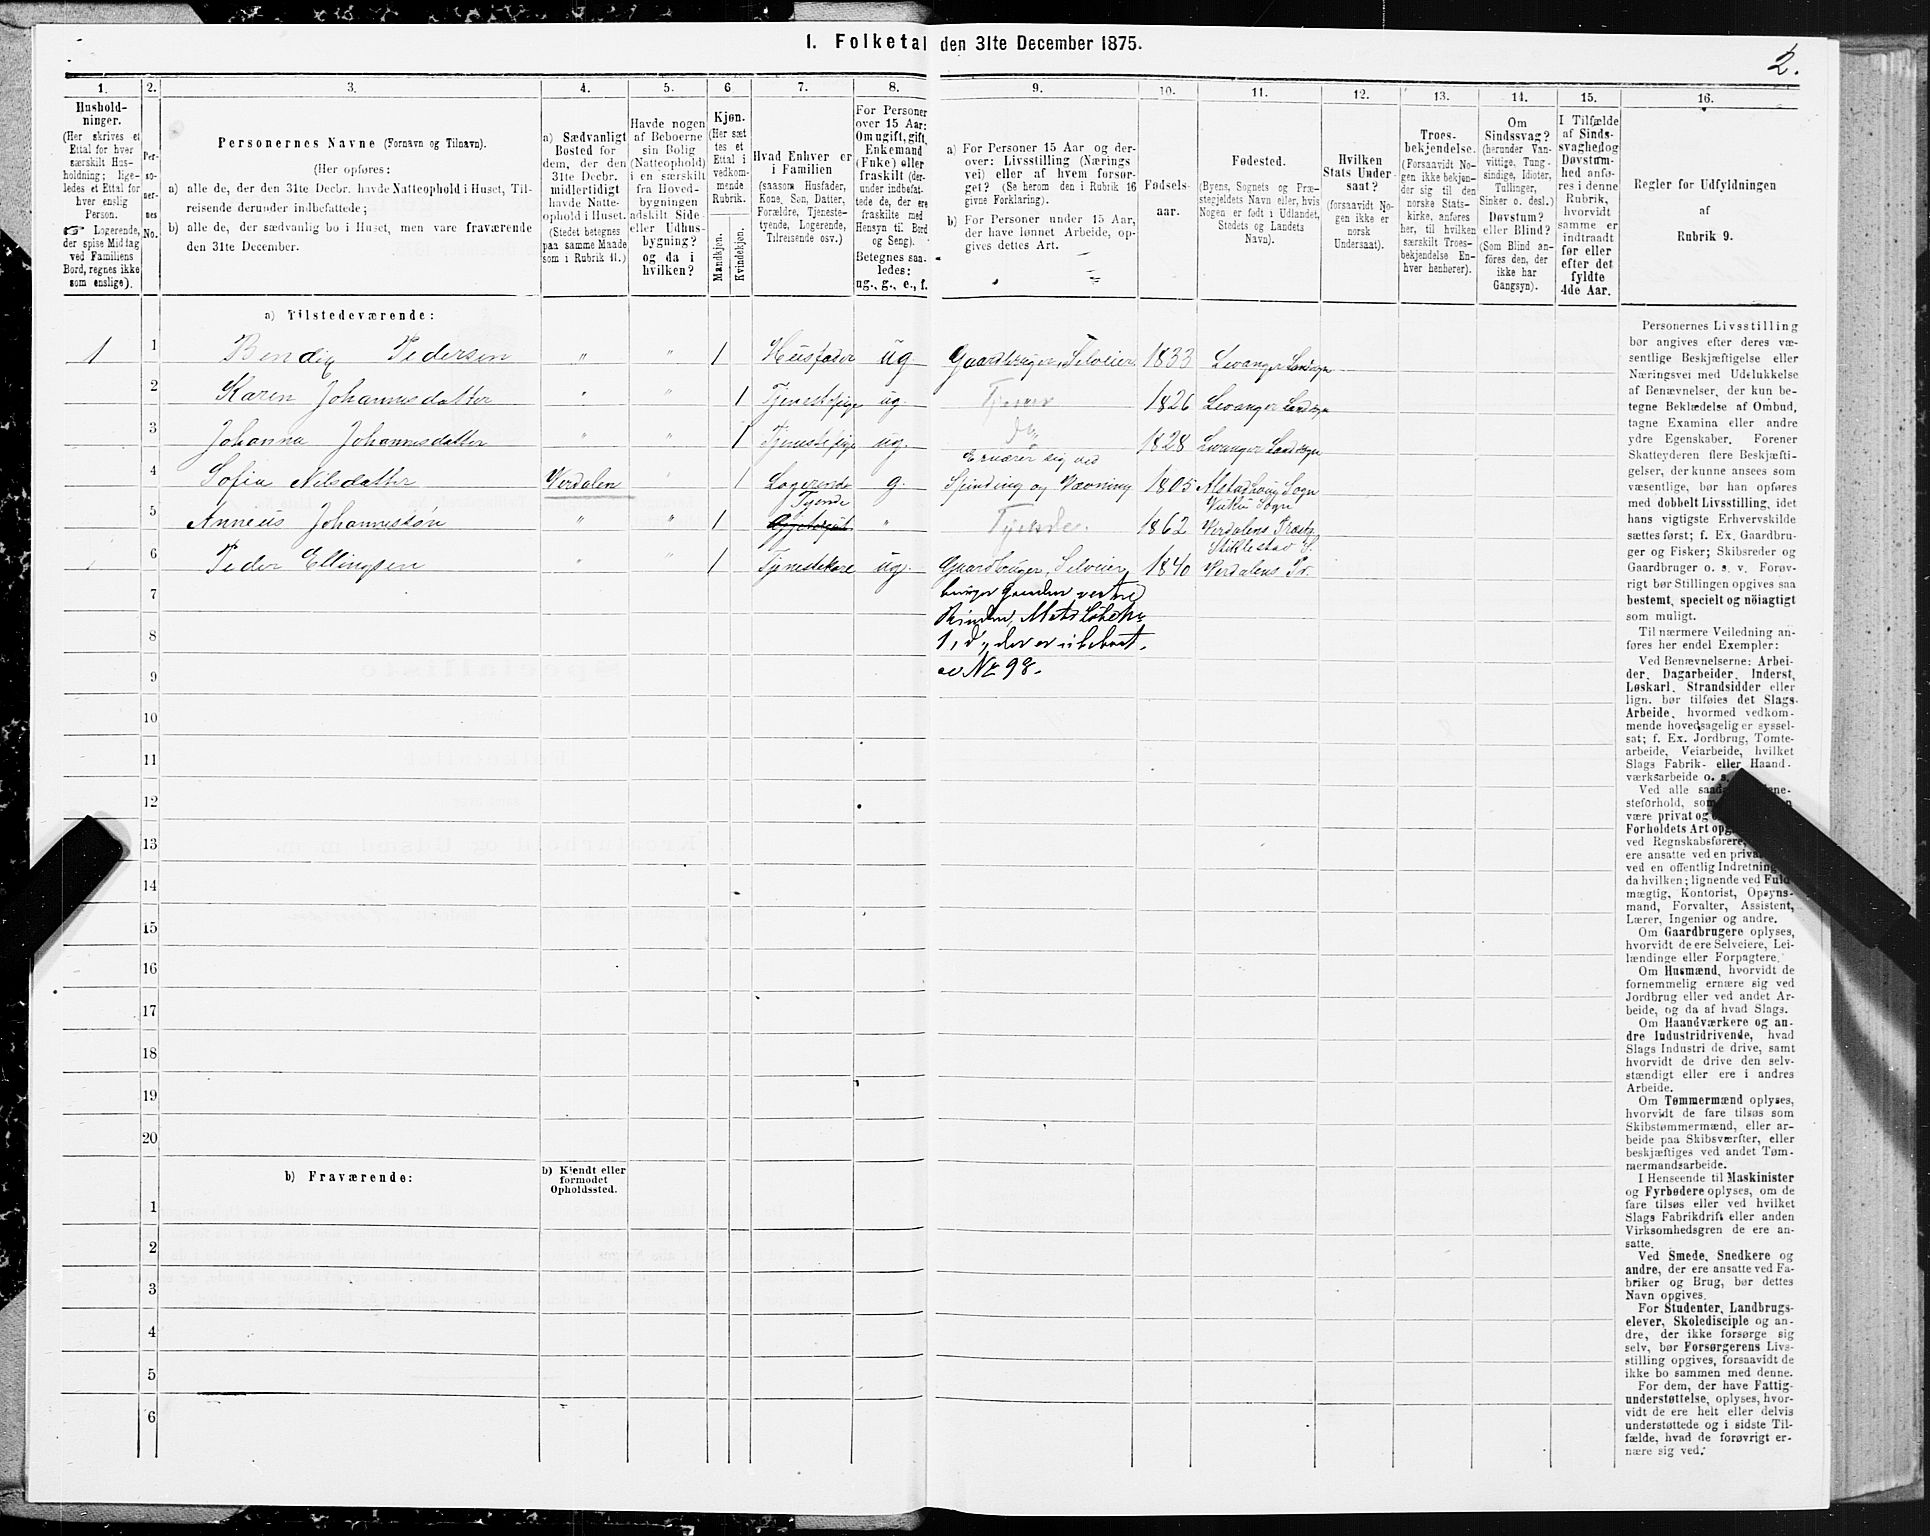 I. Folketal den 31te December 1875.
2.
1.
Hushold-
ninger.
(Her skrives et
Ettal for hver
særskilt Hus-
holdning; lige-
ledes et Ettal for
hver enslig
Person.
Logerende,
der spise Middag
ved Familiens
Bord, regnes ikke
som enslige).
2.
Per-
so-
ner-
nes
No.
3.
Personernes Navne (Fornavn og Tilnavn).
(Her opføres:
a) alle de, der den 31te Decbr. havde Natteophold i Huset, Til-
reisende derunder indbefattede;
b) alle de, der sædvanlig bo i Huset, men vare fraværende
den 31te December.
4.
a) Sædvanligt
Bosted for
dem, der den
31te Decbr.
midlertidigt
havde Natte-
ophold i Huset.
(Stedet betegnes
paa samme Maade
som i Rubrik 11.)
5.
Havde nogen
af Beboerne
sin Bolig
(Natteophold)
i en særskilt
fra Hoved-
bygningen
adskilt Side-
eller Udhus-
bygning?
og da i
hvilken?
6
Kjøn.
(Her sæt
tes et
Ettal i
vedkom-
mende
Rubrik.
Mandkjøn.
Kvindekjøn.
7.
Hvad Enhver er
i Familien
(saasom Husfader,
Kone, Søn, Datter,
Forældre, Tjeneste-
tyende, Logerende,
Tilreisende osv.)
8.
For Personer
over 15 Aar:
Om ugift, gift,
Enkemand
(Enke) eller
fraskilt (der-
under indbefat-
tede de, der ere
fraskilte med
Hensyn til Bord
og Seng).
Betegnes saa-
ledes:
ug., g., e., f.
9.
a) For Personer 15 Aar og der-
over: Livsstilling (Nærings
vei) eller af hvem forsør-
get? (Se herom den i Rubrik 16
givne Forklaring).
b) For Personer under 15 Aar,
der have lønnet Arbeide, op-
gives dettes Art.
10.
Fødsels-
aar.
11.
Fødested.
(Byens, Sognets og Præ-
stegjeldets Navn eller, hvis
Nogen er født i Udlandet,
Stedets og Landets
Navn).
12.
Hvilken
Stats Under-
saat?
(forsaavidt No-
gen ikke er
norsk
Undersaat).
13.
Troes-
bekjendelse.
(Forsaavidt No-
gen ikke bekjen-
der sig til den
norske Stats-
kirke, anføres
her, til hvilken
særskilt Troes-
bekjendelse En-
hver henhører).
14.
Om
Sindssvag?
(herunder Van-
vittige, Tung-
sindige, Idioter,
Tullinger,
Sinker o. desl.)
Døvstum?
eller Blind?
(Som Blind an-
føres den, der
ikke har
Gangsyn).
15.
I Tilfælde
af Sinds-
svaghed og
Døvstum-
hed anfø-
res i denne
Rubrik,
hvorvidt
samme er
indtraadt
før eller
efter det
fyldte
4de Aar.
16.
Regler for Udfyldningen
af
Rubrik 9.
a) Tilstedeværende:
1 1 Bendig Pedersen " " 1 Husfader ug. Gaardbruger, Selveier 1833 Levanger Landsogn
2 Karen Johannesdatter " " 1 Tjenestepige ug. Tjener 1826 Levanger Landsogn
3 Johanna Johannesdatter " " 1 Tjenestepige ug. Do 1828 Levanger Landsogn
Ernærer sig ved
4 Sofia Nilsdatter Verdalen " 1 Logerende g. Spinding og Vævning 1805 Alstadhaug Sogn
Tyende Vukku Sogn
5 Anneus Johannesøn " " 1 " Tjener 1862 Verdalens Præstg
Stiklestad S.
6 Peder Ellingsen " " 1 Tjenestekarl ug. Gaardbruger, Selveier 1840 Verdalens Pr.
7 bruger Gaarden vestre
8 Rinden, Mats Løbe No
9 1, d, der er ubeboet.
No 98.
10
11
12
13
14
15
16
17
18
19
20
b) Fraværende:
b) Kjendt eller
formodet
Opholdssted.
1
2
3
4
5
6
Personernes Livsstilling
bør angives efter deres væ-
sentlige Beskjæftigelse eller
Næringsvei med Udelukkelse
af Benævnelser, der kun be-
tegne Beklædelse af Ombud,
tagne Examina eller andre
ydre Egenskaber. Forener
Skatteyderen flere Beskjæfti-
gelser, der kunne ansees som
væsentlige, bør han opføres
med dobbelt Livsstilling, idet
hans vigtigste Erhvervskilde
sættes først; f. Ex. Gaardbru-
ger og Fisker; Skibsreder og
Gaardbruger o. s. v. Forøv-
rigt bør Stillingen opgives saa
bestemt, specielt og nöiagtigt
som muligt.
Til nærmere Veiledning an-
føres her endel Exempler:
Ved Benævnelserne: Arbei-
der, Dagarbeider, Inderst,
Løskarl, Strandsidder eller
lign. bør tilføies det Slags
Arbeide, hvormed vedkom-
mende hovedsagelig er syssel-
sat; f. Ex. Jordbrug, Tomte-
arbeide, Veiarbeide, hvilket
Slags Fabrik- eller Haand-
værksarbeide o. s.
Ved alle
steforhold, som
være privat og
Forholdets Art
ved Regnskabsførere,
ere ansatte ved en
ved en offentlig Indretning
da hvilken; lignende ved Fuld
mægtig, Kontorist, Opsyns-
mand, Forvalter, Assistent,
Lærer, Ingeniør og andre.
Om Gaardbrugere oplyses,
hvorvidt de ere Selveiere, Lei-
lændinge eller Forpagtere.
Om Husmænd, hvorvidt de
fornemmelig ernære sig ved
Jordbrug eller ved andet Ar-
beide, og da af hvad Slags.
Om Haandværkere og an-
dre Industridrivende, hvad
Slags Industri de drive, samt
hvorvidt de drive den selv-
stændigt eller ere i andres
Arbeide.
Om Tømmermænd oplyses,
hvorvidt de fare tilsøs som
Skibstømmermænd, eller ar-
beide paa Skibsværfter, eller
beskjæftiges ved andet Tøm-
mermandsarbeide.
I Henseende til Maskinister
og Fyrbødere oplyses, om de
fare tilsøs eller ved hvilket
Slags Fabrikdrift eller anden
Virksomhedsgren de ere an-
satte.
Ved Smede, Snedkere og
andre, der ere ansatte ved Fa-
briker og Brug, bør dettes
Navn opgives.
For Studenter, Landbrugs-
elever, Skoledisciple og an-
dre, der ikke forsørge sig
selv, bør Forsørgerens Livs-
stilling opgives, forsaavidt de
ikke bo sammen med denne.
For dem, der have Fattig-
understøttelse, oplyses, hvor-
vidt de ere helt eller delvis
understøttede og i sidste Til-
fælde, hvad de forøvrigt er-
nære sig ved.